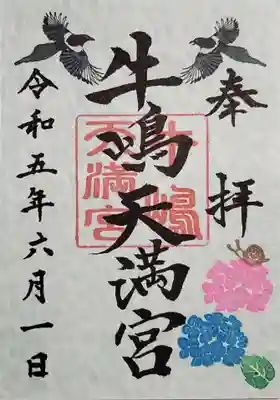 奉拝
牛嶋天満宮
牛嶋
天満宮
令和五年六月一日